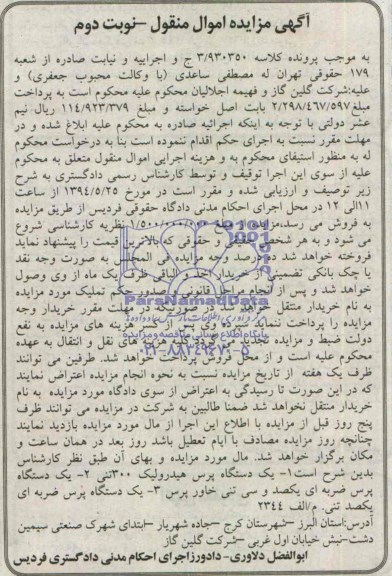 آگهی مزایده اموال منقول –نوبت دوم
به موجب پرونده کلاسه ۳/۹۳۰۳۵۰ ج و اجراییه و نیابت صادره از شعبه
۱۷۹ حقوقی تهران له مصطفی ساعدی (با وکالت محبوب جعفری) و
علیه:شرکت گلین گاز و فهیمه اجلالیان محکوم علیه محکوم است به پرداخت
مبلغ۲/۲۹۸/۴۶۷/۵۹۷ بابت اصل خواسته و مبلغ ۱۱۴/۹۲۳/۳۷۹ ریال نیم
عشر دولتی با توجه به اینکه اجرائیه صادره به محکوم علیه ابلاغ شده و در
مهلت مقرر نسبت به اجرای حکم اقدام ننموده است بنا به درخواست محکوم
له به منظور استیفای محکوم به و هزینه اجرایی اموال منقول متعلق به محکوم
علیه از سوی این اجرا توقیف و توسط کارشناس رسمی دادگستری به شرح
زیر توصیف و ارزیابی شده و مقرر است در مورخ ۱۳۹۴/۵/۲۵ از ساعت
۱۱الی ۱۲ در محل اجرای احکام مدنی دادگاه حقوقی فردیس از طریق مزایده
به فروش می رسد.مزایده از مبلغ نظریه کارشناسی شروع
می شود و به هر شخص حقیقی و حقوقی که بالاترین قیمت را پیشنهاد نماید
فروخته خواهد شد ده درصد وجه مزایده فی المجلس به صورت وجه نقد
یا چک بانکی تضمینی از خریدار اخذ و الباقی ظرف یک ماه از وی وصول
خواهد شد و پس از انجام مراحل قانونی و صدور حکم تملیک مورد مزایده
به نام خریدار منتقل خواهد شد در صورتیکه در مهلت مقرر خریدار وجه
مزایده را پرداخت ننماید سپرده وی پس از کسر هزینه های مزایده به نفع
دولت ضبط و مزایده تجدید می گردد کلیه هزینه های نقل و انتقال به عهده
محکوم علیه است و از محل فروش پرداخت خواهد شد. طرفین می توانند
ظرف یک هفته از تاریخ مزایده نسبت به نحوه انجام مزایده اعتراض نمایند
که در این صورت تا رسیدگی به اعتراض از سوی دادگاه مورد مزایده به نام
خریدار منتقل نخواهد شد ضمنا طالبین به شرکت در مزایده می توانند ظرف
پنج روز قبل از مزایده با اطلاع این اجرا از مال مورد مزایده بازدید نمایند
چنانچه روز مزایده مصادف با ایام تعطیل باشد روز بعد در همان ساعت و
مکان برگزار خواهد شد. مال مورد مزایده و بهای آن طبق نظر کارشناس
بدین شرح است۱- یک دستگاه پرس هیدرولیک ۳۰۰تنی ۲- یک دستگاه
پرس ضربه ای یکصد و سی تنی خاور پرس ۳- یک دستگاه پرس ضربه ای
یکصد تنی. م/الف ۲۳۴۴
آدرس:استان البرز –شهرستان کرج –جاده شهریار –ابتدای شهرک صنعتی سیمین
دشت-نبش خیابان اول غربی –شرکت گلین گاز
ابوالفضل دلاوری- دادورزاجرای احکام مدنی دادگستری فردیس
ParsNamadData
پایگاه اطلاع رسانی مناقصه و مزایده
۰۲۱-۸۸۳۴۹۶۷۰-۵